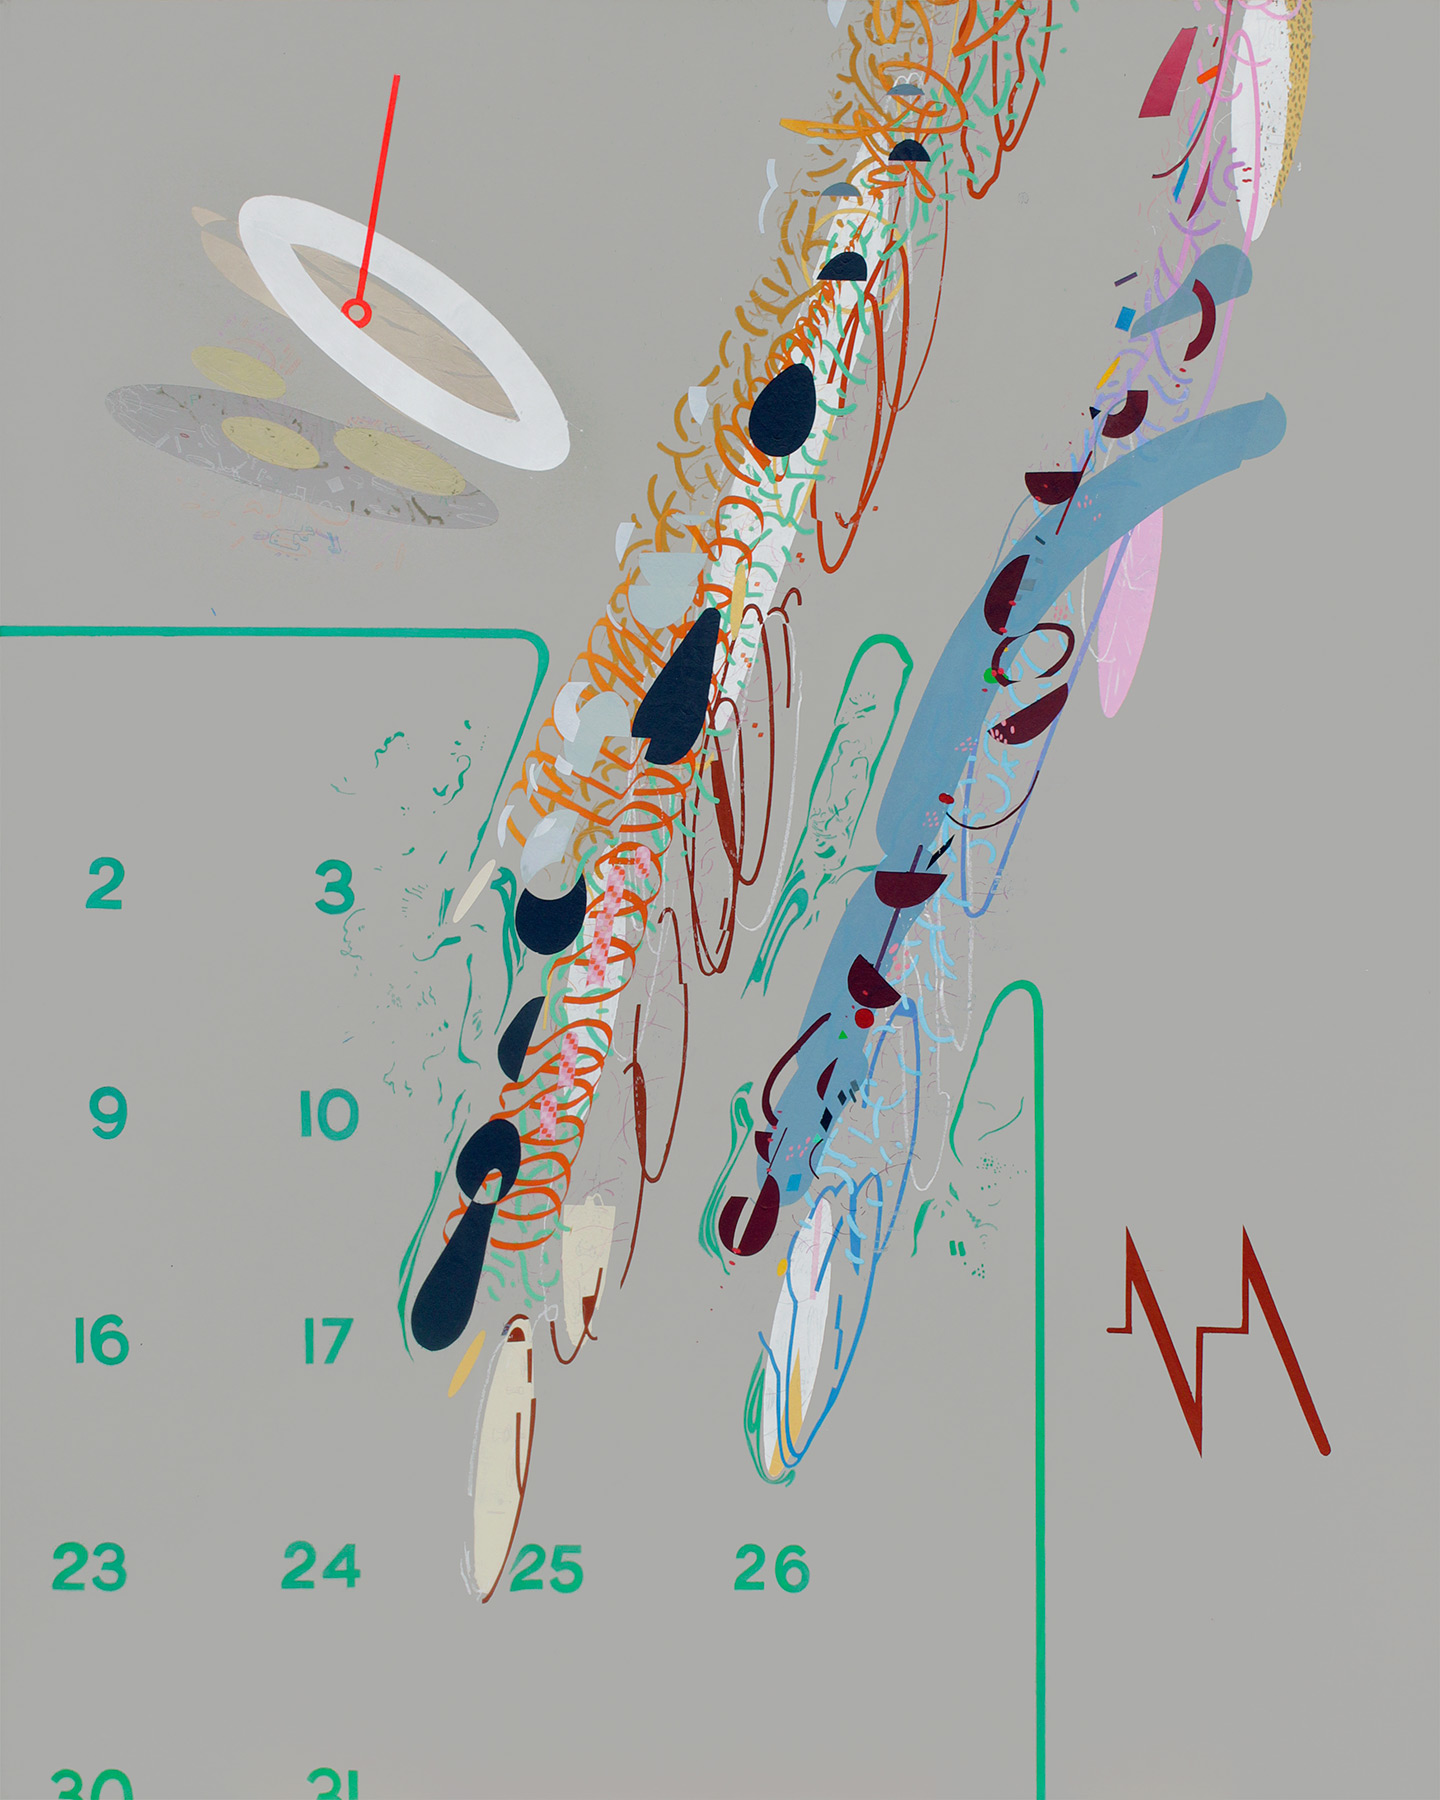 2 3
9 10
16 17
23 24 25 26
30 31